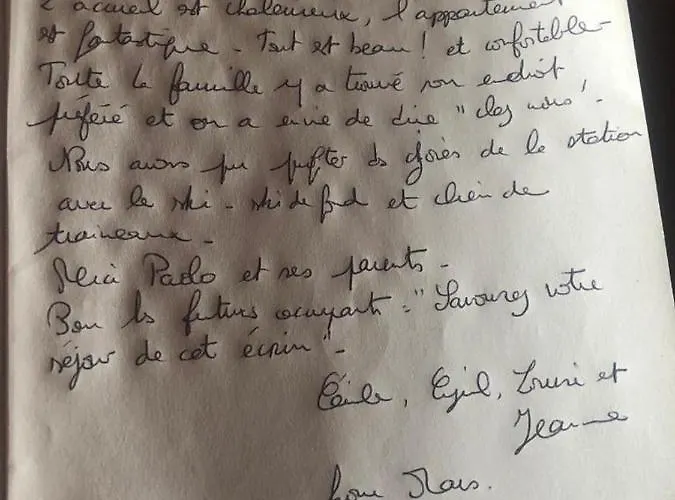 L'accueil est chaleureux, l'appartement
est fantastique - Tout est beau ! et confortable -
Toute la famille y a trouvé son endroit
préféré et on a envie de dire "chez nous".
Nous avons pu profiter des joies de la station
avec le ski - ski de fond et chien de
traineaux -
Merci Paolo et ses parents -
Bon les futurs occupants : "Savourez votre
séjour de cet écrin" -
Cécile, Cyril, et
Jeanne
Mars.